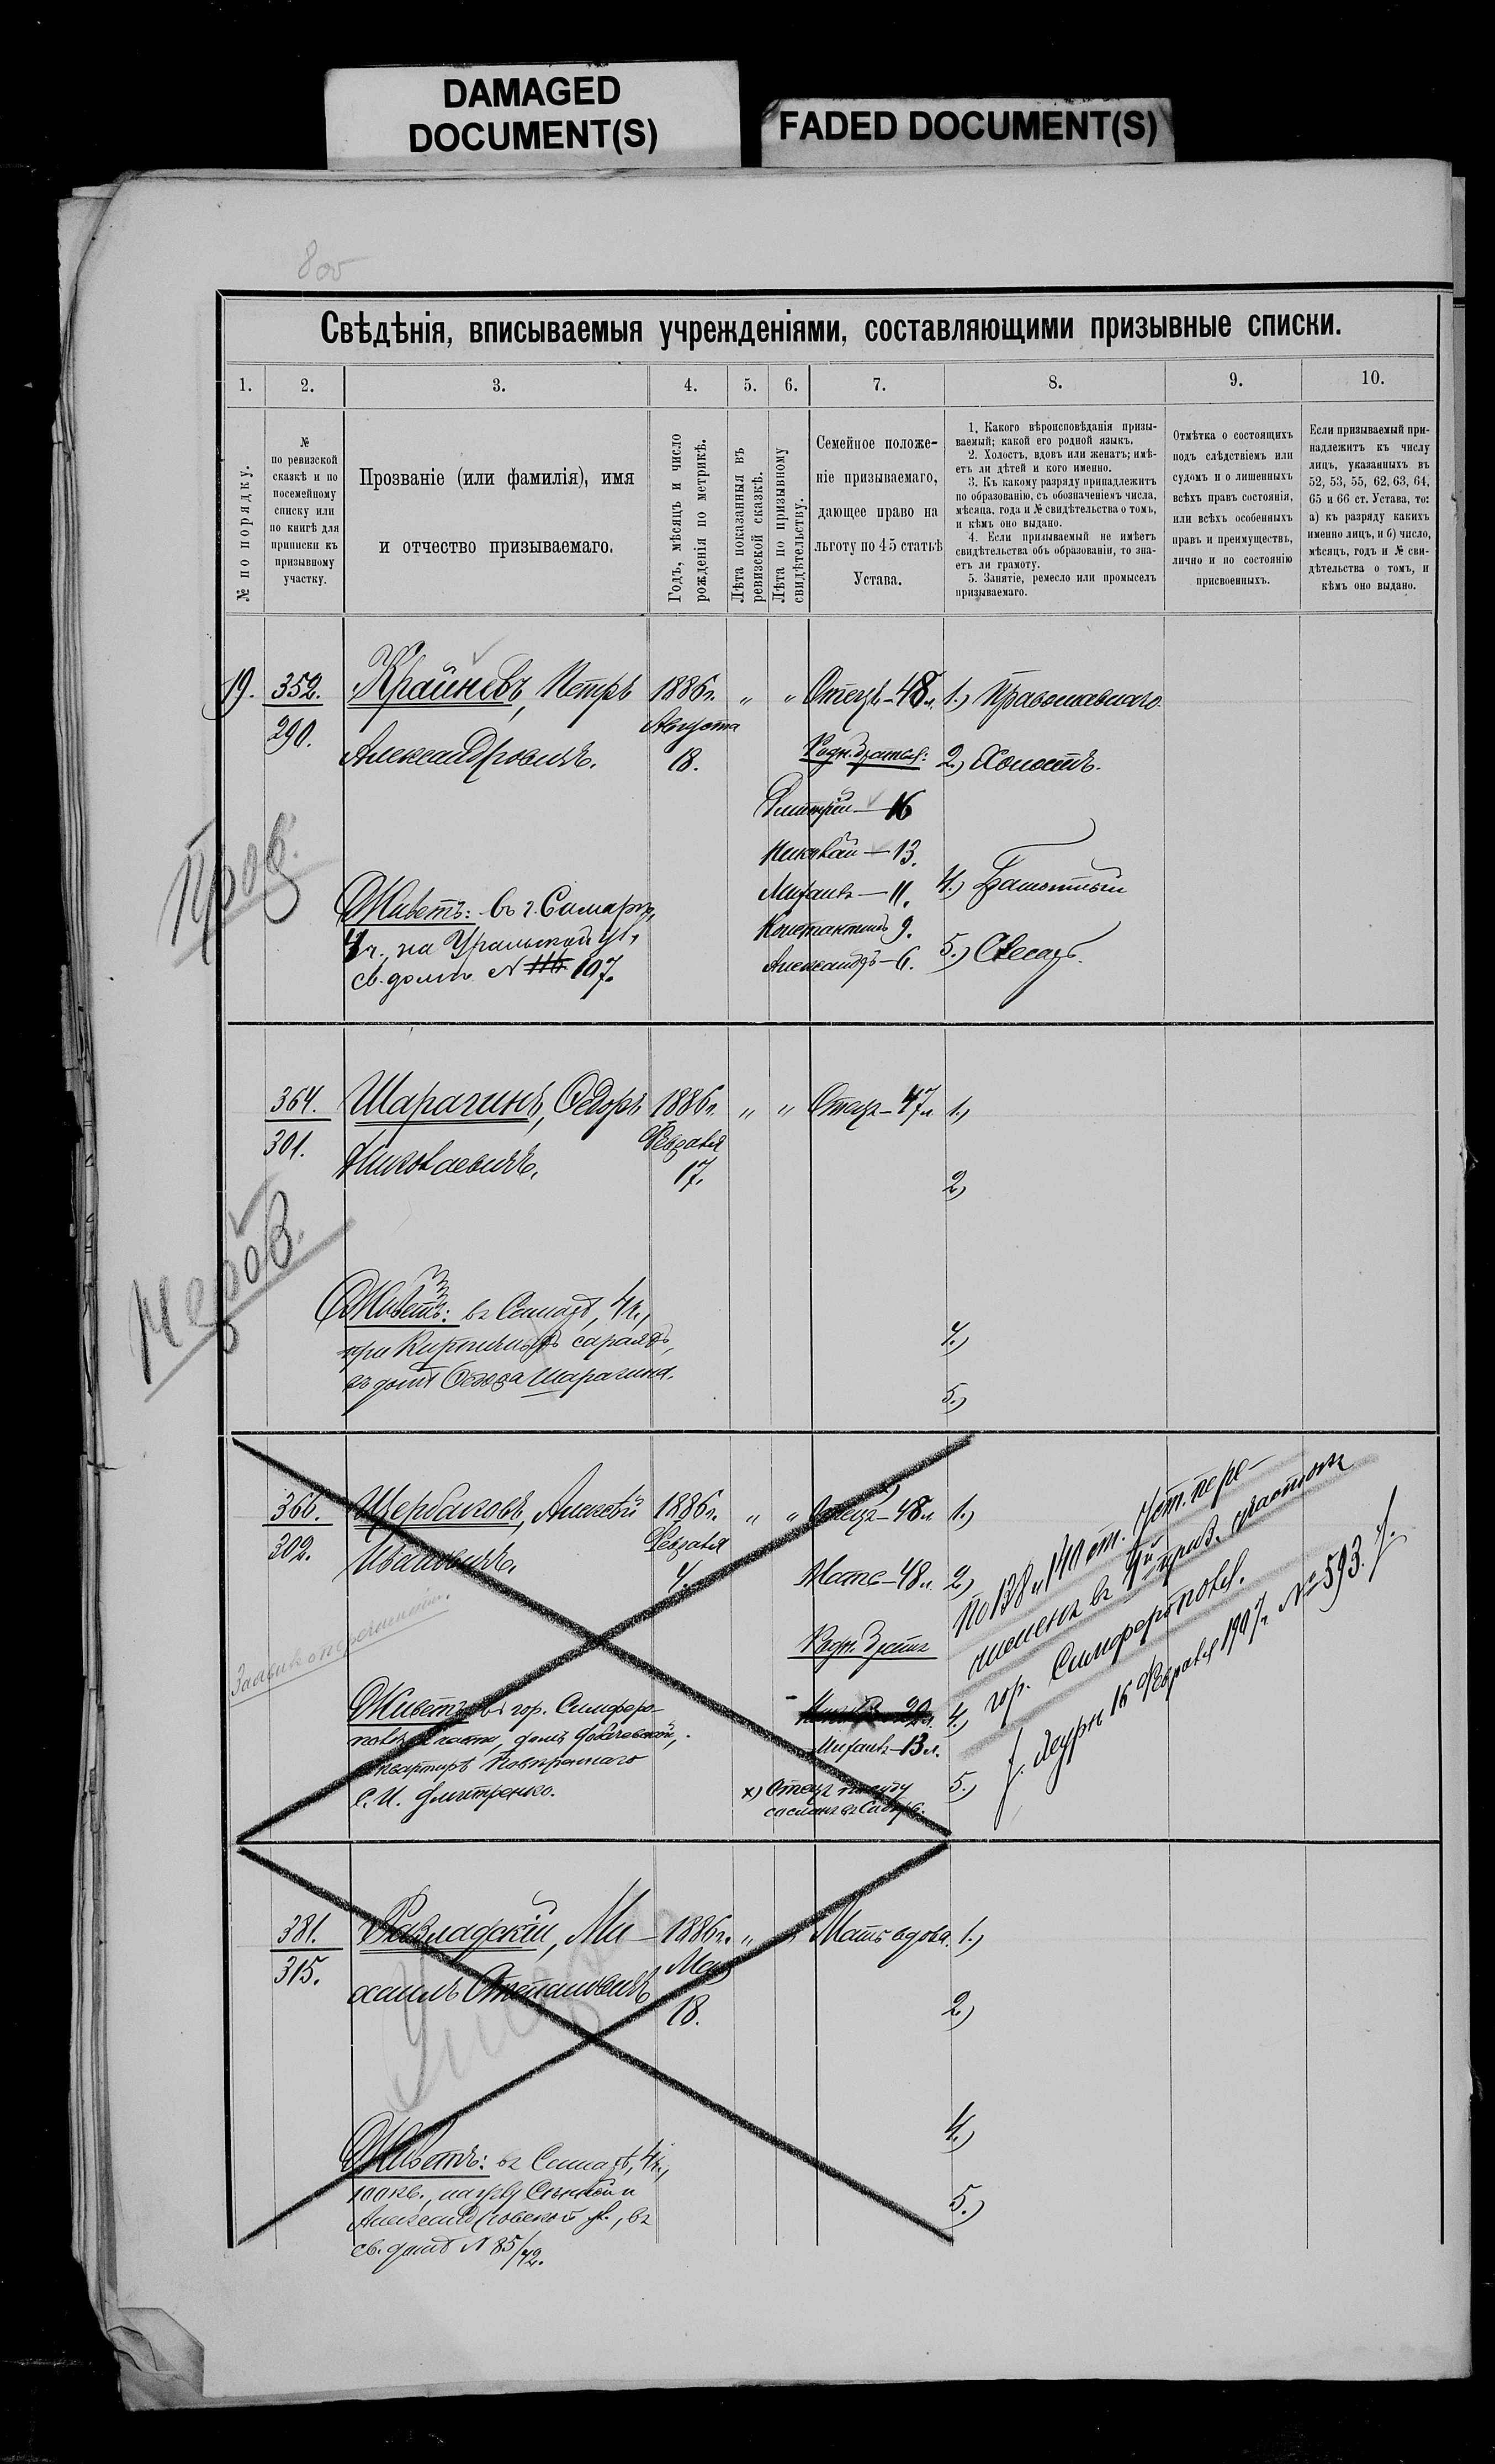 DAMAGED
DOCUMENT(S)
FADED DOCUMENT(S)
Свѣдѣнія, вписываемыя учрежденіями, составляющими призывные списки.
1.
2.
3.
4.
5.
6.
7.
8.
9.
10.
№ по порядку.
№
по ревизской
сказкѣ и по
посемейному
списку или
по книгѣ для
приписки къ
призывному
участку.
Прозваніе (или фамилія), имя
и отчество призываемаго.
Годъ, мѣсяцъ и число
рожденія по метрикѣ.
Лѣта показанныя въ
ревизской сказкѣ.
Лѣта по призывному
свидѣтельству.
Семейное положе-
ніе призываемаго,
дающее право на
льготу по 45 статьѣ
Устава.
1. Какого вѣроисповѣданія призы-
ваемый; какой его родной языкъ.
2. Холостъ, вдовъ или женатъ; имѣ-
етъ ли дѣтей и кого именно.
3. Къ какому разряду принадлежитъ
по образованію, съ обозначеніемъ числа,
мѣсяца, года и № свидѣтельства о томъ,
и кѣмъ оно выдано.
4. Если призываемый не имѣетъ
свидѣтельства объ образованіи, то зна-
етъ ли грамоту.
5. Занятіе, ремесло или промыселъ
призываемаго.
Отмѣтка о состоящихъ
подъ слѣдствіемъ или
судомъ и о лишенныхъ
всѣхъ правъ состоянія,
или всѣхъ особенныхъ
правъ и преимуществъ,
лично и по состоянію
присвоенныхъ.
Если призываемый при-
надлежитъ къ числу
лицъ, указанныхъ въ
52, 53, 55, 62, 63, 64,
65 и 66 ст. Устава, то:
а) къ разряду какихъ
именно лицъ, и б) число,
мѣсяцъ, годъ и № сви-
дѣтельства о томъ, и
кѣмъ оно выдано.
19. 352. Крайневъ, Петръ 1886 г. „ „ Отецъ – 48 л. 1.) Православнаго.
290. Александровичъ. Августа 18. Родн. братья: 2.) Холостъ.
Дмитрій – 16
Николай – 13.
Михаилъ – 11. 4.) Грамотный
Константинъ 9.
Александръ – 6. 5.) Слесарь.
Живетъ: въ г. Самарѣ,
4 ч., на Уральской ул.,
св. домъ N 116 107.
364. Шарагинъ, Ѳедоръ 1886 г. „ „ Отецъ – 47 л. 1.)
301. Николаевичъ. Февраля 17. 2.)
Живетъ: въ Самарѣ, 4 ч.,
при Кирпичныхъ сараяхъ,
въ домѣ Ѳедора Шарагина.
4.)
5.)
366. Щербаковъ, Алексѣй 1886 г. „ „ Отецъ – 48 л. 1.)
302. Ивановичъ. Февраля 4. Мать – 48 л. 2.)
Родн. братья
22 л. 4.)
Михаилъ – 13 л.
х) Отецъ по суду 5.)
сосланъ въ Сибирь.
Живетъ въ гор. Симферо-
полѣ
квартира Повѣреннаго
С. И. Дмитренко.
По 138 и 140 ст. Уст. пере-
численъ въ 4й приз. участокъ
гор. Симферополя.
16 Февраля 1907 г. № 593.
381. Михаилъ 1886 г. „ „ Мать вдова. 1.)
315. Степановичъ Мая 18. 2.)
Живетъ: въ Самарѣ, 4 ч.,
100 кв., на углу Сѣнной и
Александровской ул., въ
св. домѣ N 85/42.
4.)
5.)